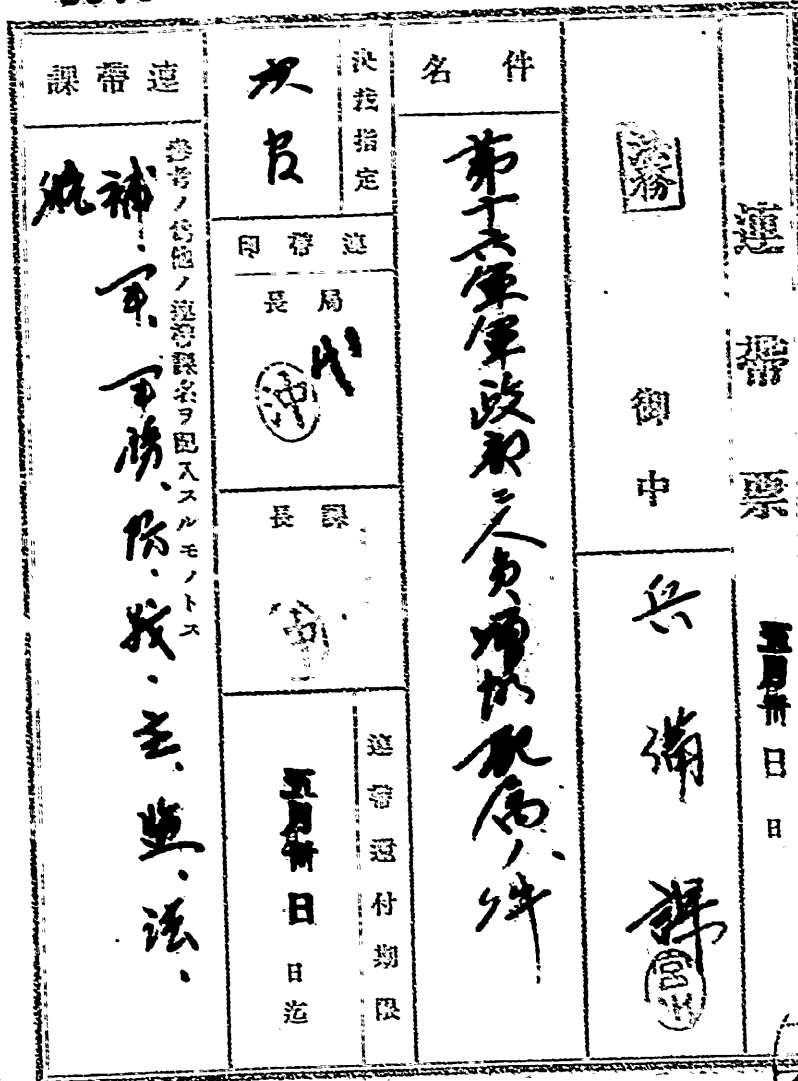 連帶票
五月卅日日
法務
御中
兵備課
宮
件名
第十六軍軍政部ニ人員増加配属ノ件
決裁指定
次官
連帶印
局長
代
沖
課長
連帶還付期限
五月卅日日迄
連帶課
參考ノ爲他ノ連帶課名ヲ記入スルモノトス
補、軍、軍務、防、戰、主、監、法、
航